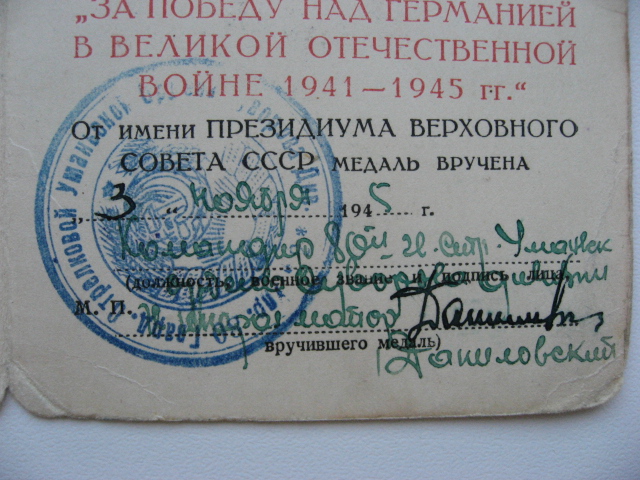 „ЗА ПОБЕДУ НАД ГЕРМАНИЕЙ
В ВЕЛИКОЙ ОТЕЧЕСТВЕННОЙ
ВОЙНЕ 1941—1945 гг.“
От имени ПРЕЗИДИУМА ВЕРХОВНОГО
СОВЕТА СССР медаль вручена
„3“ ноября 1945 г.
Командир 80ой
(должность, военное звание и подпись лица,
М. П.
вручившего медаль)
Даниловский